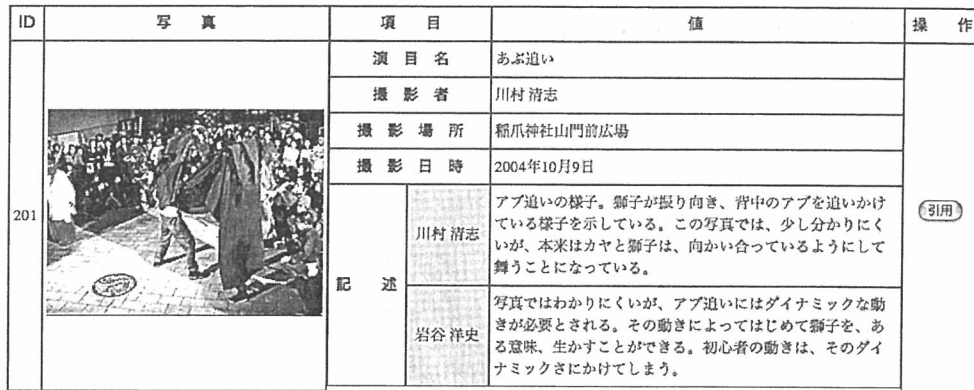 ID 写 真 項 目 値 操 作
201
演 目 名 あぶ追い
撮 影 者 川村 清志
撮 影 場 所 稲爪神社山門前広場
撮 影 日 時 2004年10月9日
記 述
川村 清志
アブ追いの様子。獅子が振り向き、背中のアブを追いかけ
ている様子を示している。この写真では、少し分かりにく
いが、本来はカヤと獅子は、向かい合っているようにして
舞うことになっている。
岩谷 洋史
写真ではわかりにくいが、アブ追いにはダイナミックな動
きが必要とされる。その動きによってはじめて獅子を、あ
る意味、生かすことができる。初心者の動きは、そのダイ
ナミックさにかけてしまう。
引用